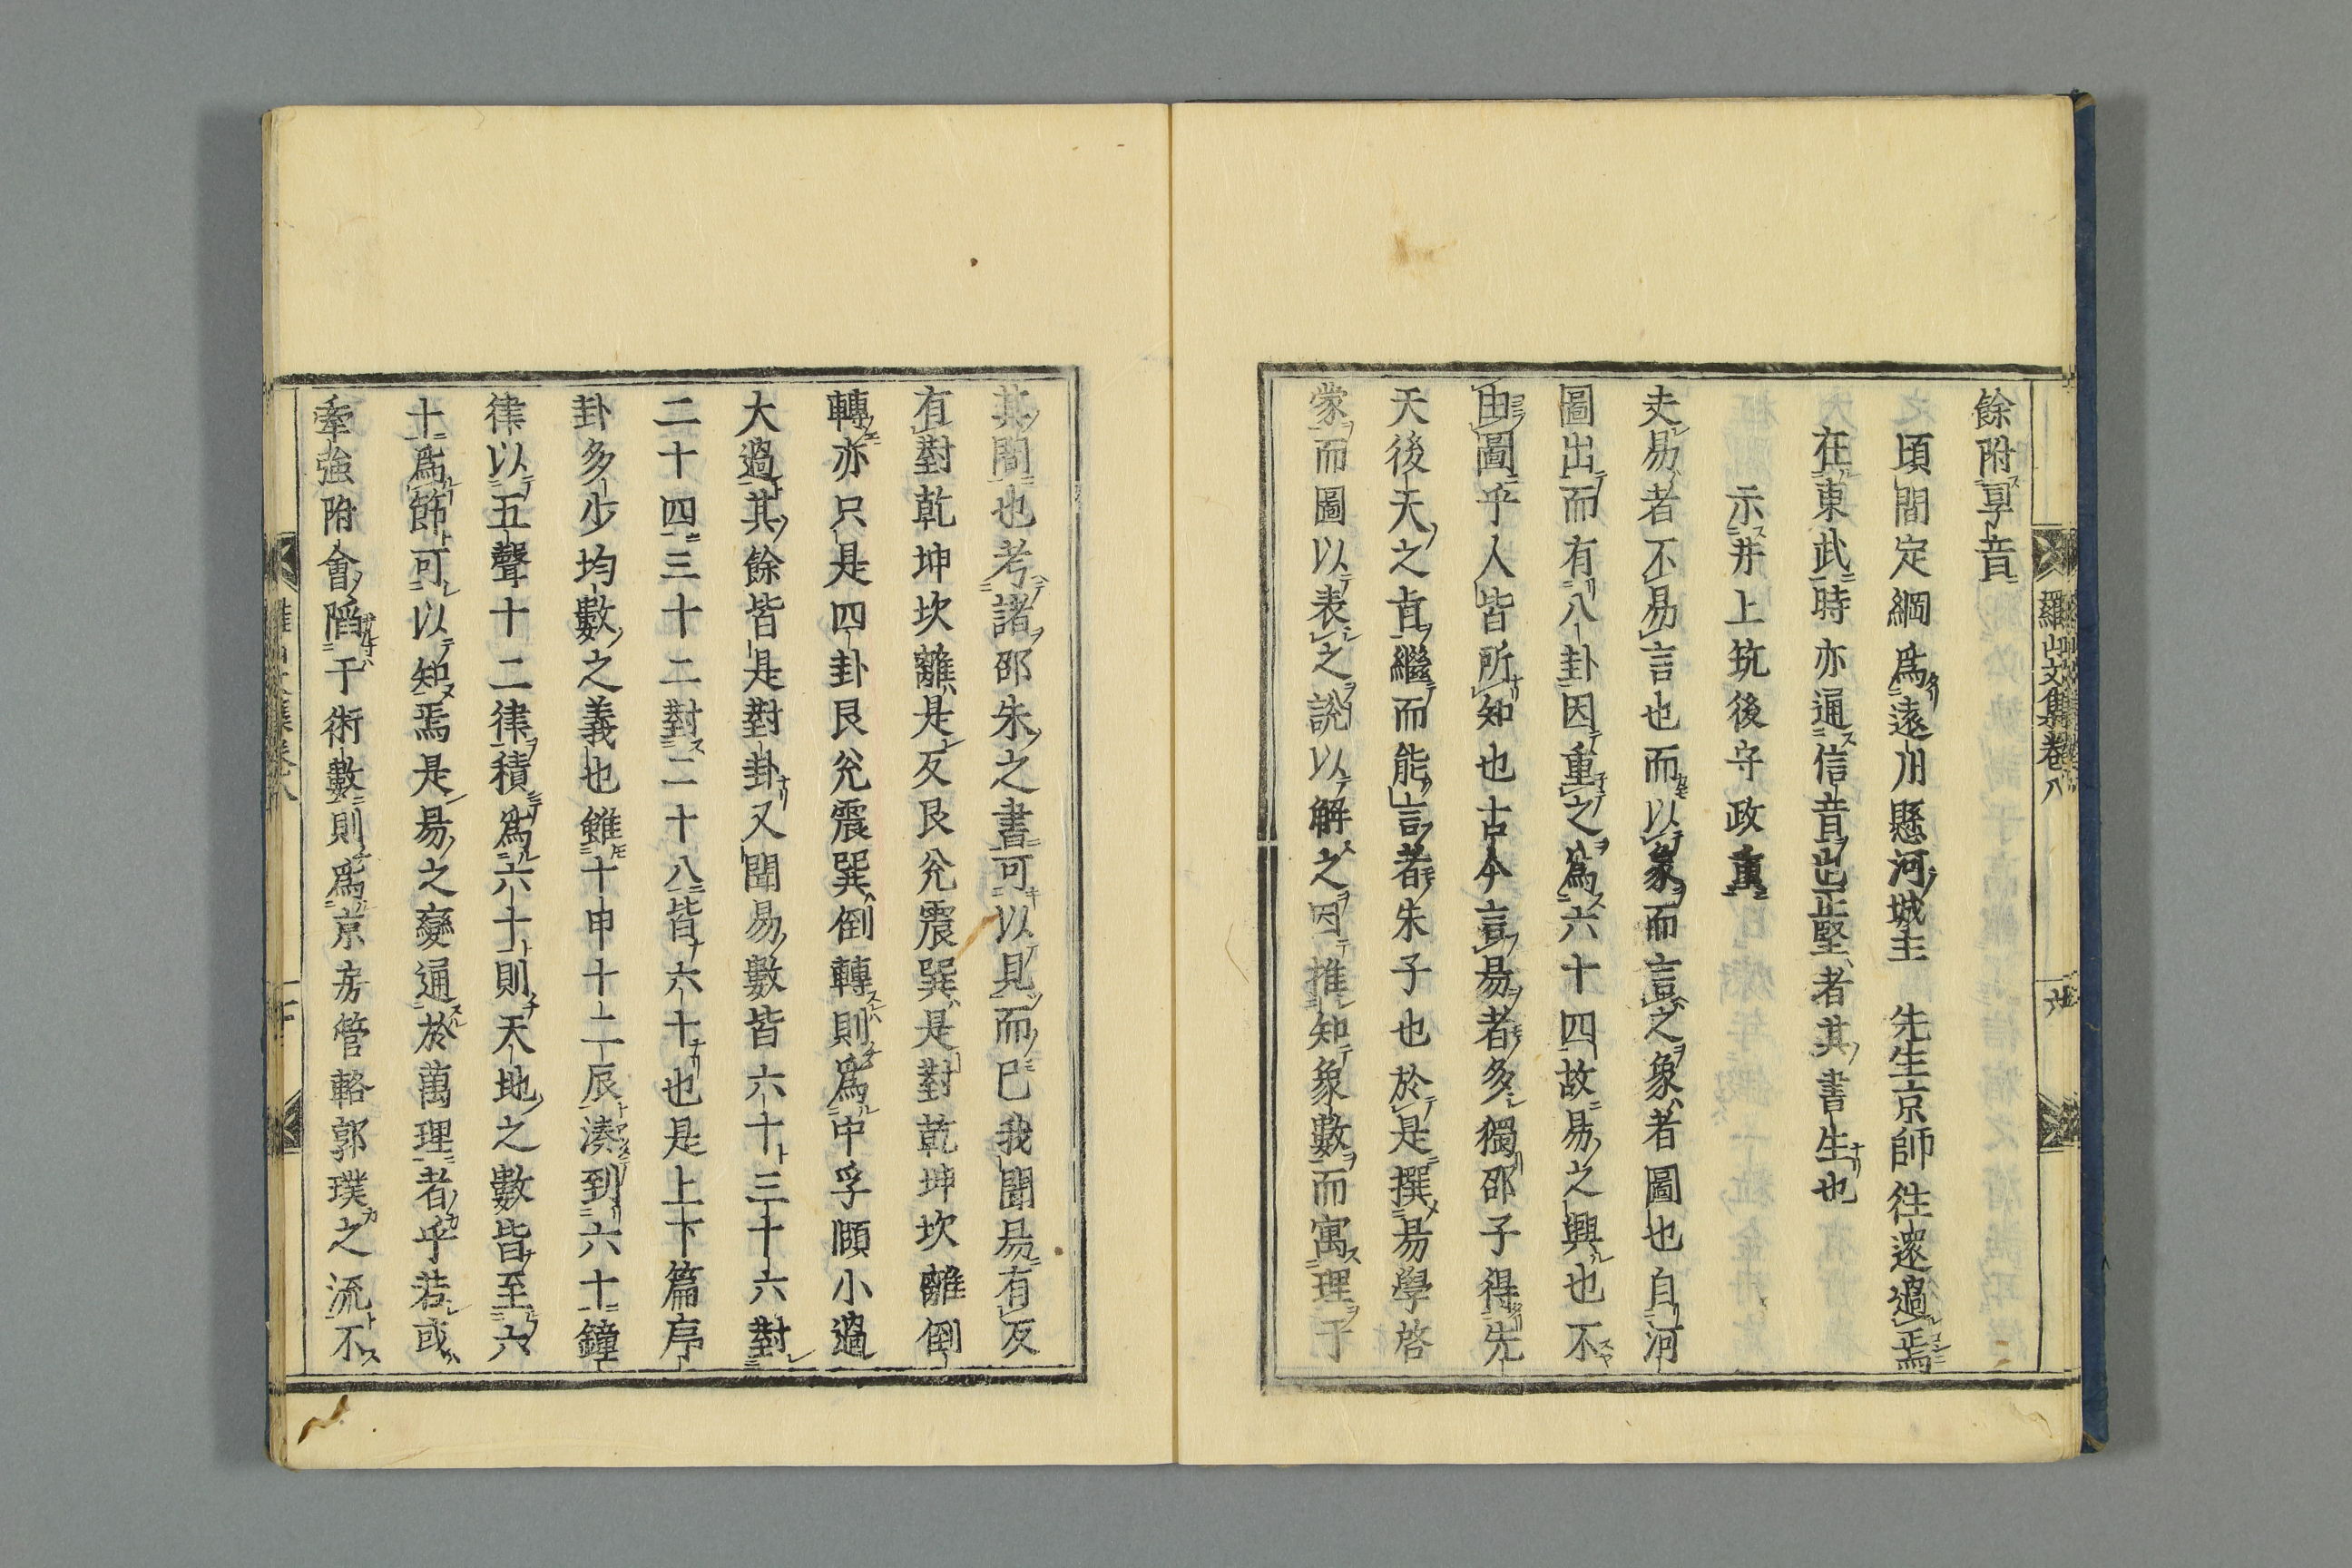 餘附享音
頃間定綱爲遠川懸河城主　先生京師往還過焉
在東武時亦通信音出正堅者其書生也
示井上筑後守政重
夫易者不易言也而以象而言之象者圖也自河
圖出而有八卦因重之爲六十四故易之興也不
由圖乎人皆所知也古今言易者多獨邵子得先
天後天之旨繼而能言者朱子也於是撰易學啓
蒙而圖以表之說以解之因推知象數而寓理于
羅山文集卷八
其間也考諸邵朱之書可以見而已我聞易有反
有對乾坤坎離是反艮兊震巽是對乾坤坎離倒
轉亦只是四卦艮兊震巽倒轉則爲中孚頤小過
大過其餘皆是對卦又聞易數皆六十三十六對
二十四三十二對二十八皆六十也是上下篇序
卦多少均數之義也雖十申十二辰湊到六十鐘
律以五聲十二律積爲六十則天地之數皆至六
十爲節可以知焉是易之變通於萬理者乎若或
牽強附會䧟于術數則爲京房管輅郭璞之流不